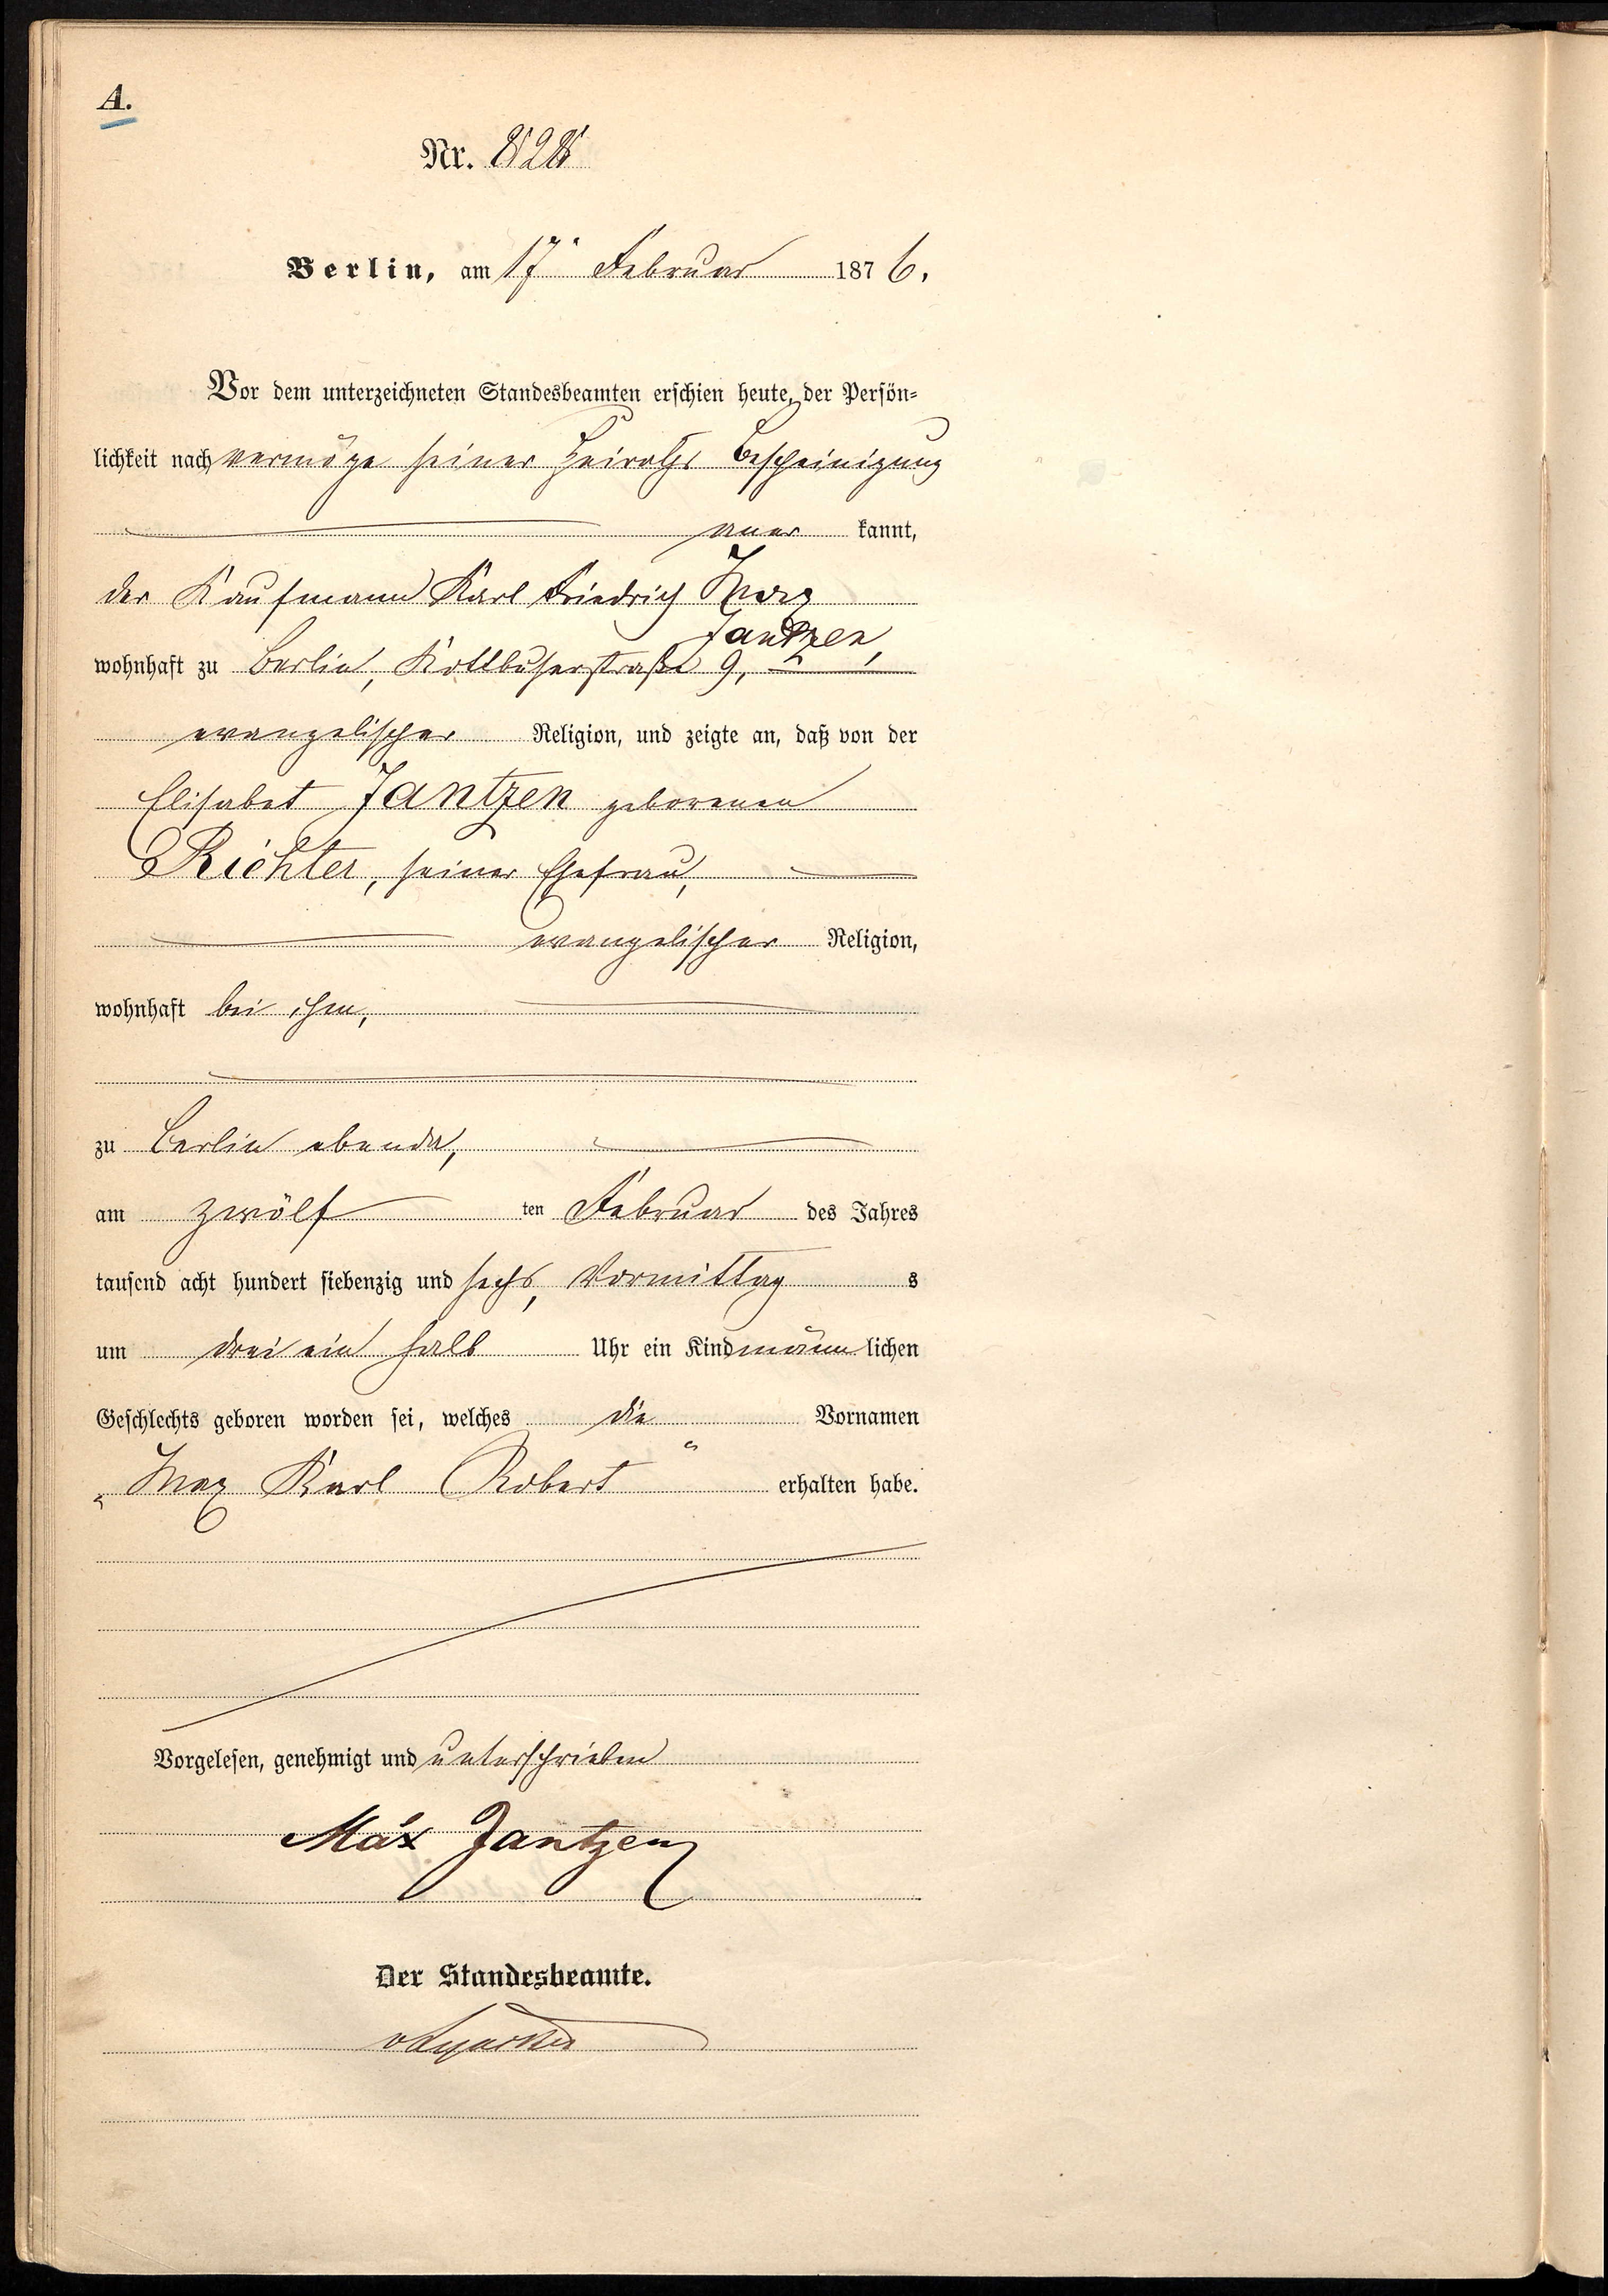 A.
Nr. 828
Berlin, am 17. Februar 1876.
Vor dem unterzeichneten Standesbeamten erschien heute, der Persön-
lichkeit nach vermöge seiner Heiraths Bescheinigung
aner kannt,
der Kaufmann Karl Friedrich Max
Jantzen,
wohnhaft zu Berlin, Kottbuserstraße 9,
evangelischer Religion, und zeigte an, daß von der
Elisabet Jantzen geborenen
Richter, seiner Ehefrau,
evangelischer Religion,
wohnhaft bei ihm,
zu Berlin ebenda,
am zwölf ten Februar des Jahres
tausend acht hundert siebenzig und sechs, Vormittag s
um drei ein halb Uhr ein Kind männ lichen
Geschlechts geboren worden sei, welches die Vornamen
„Max Karl Robert“ erhalten habe.
Vorgelesen, genehmigt und unterschrieben
Max Jantzen
Der Standesbeamte.